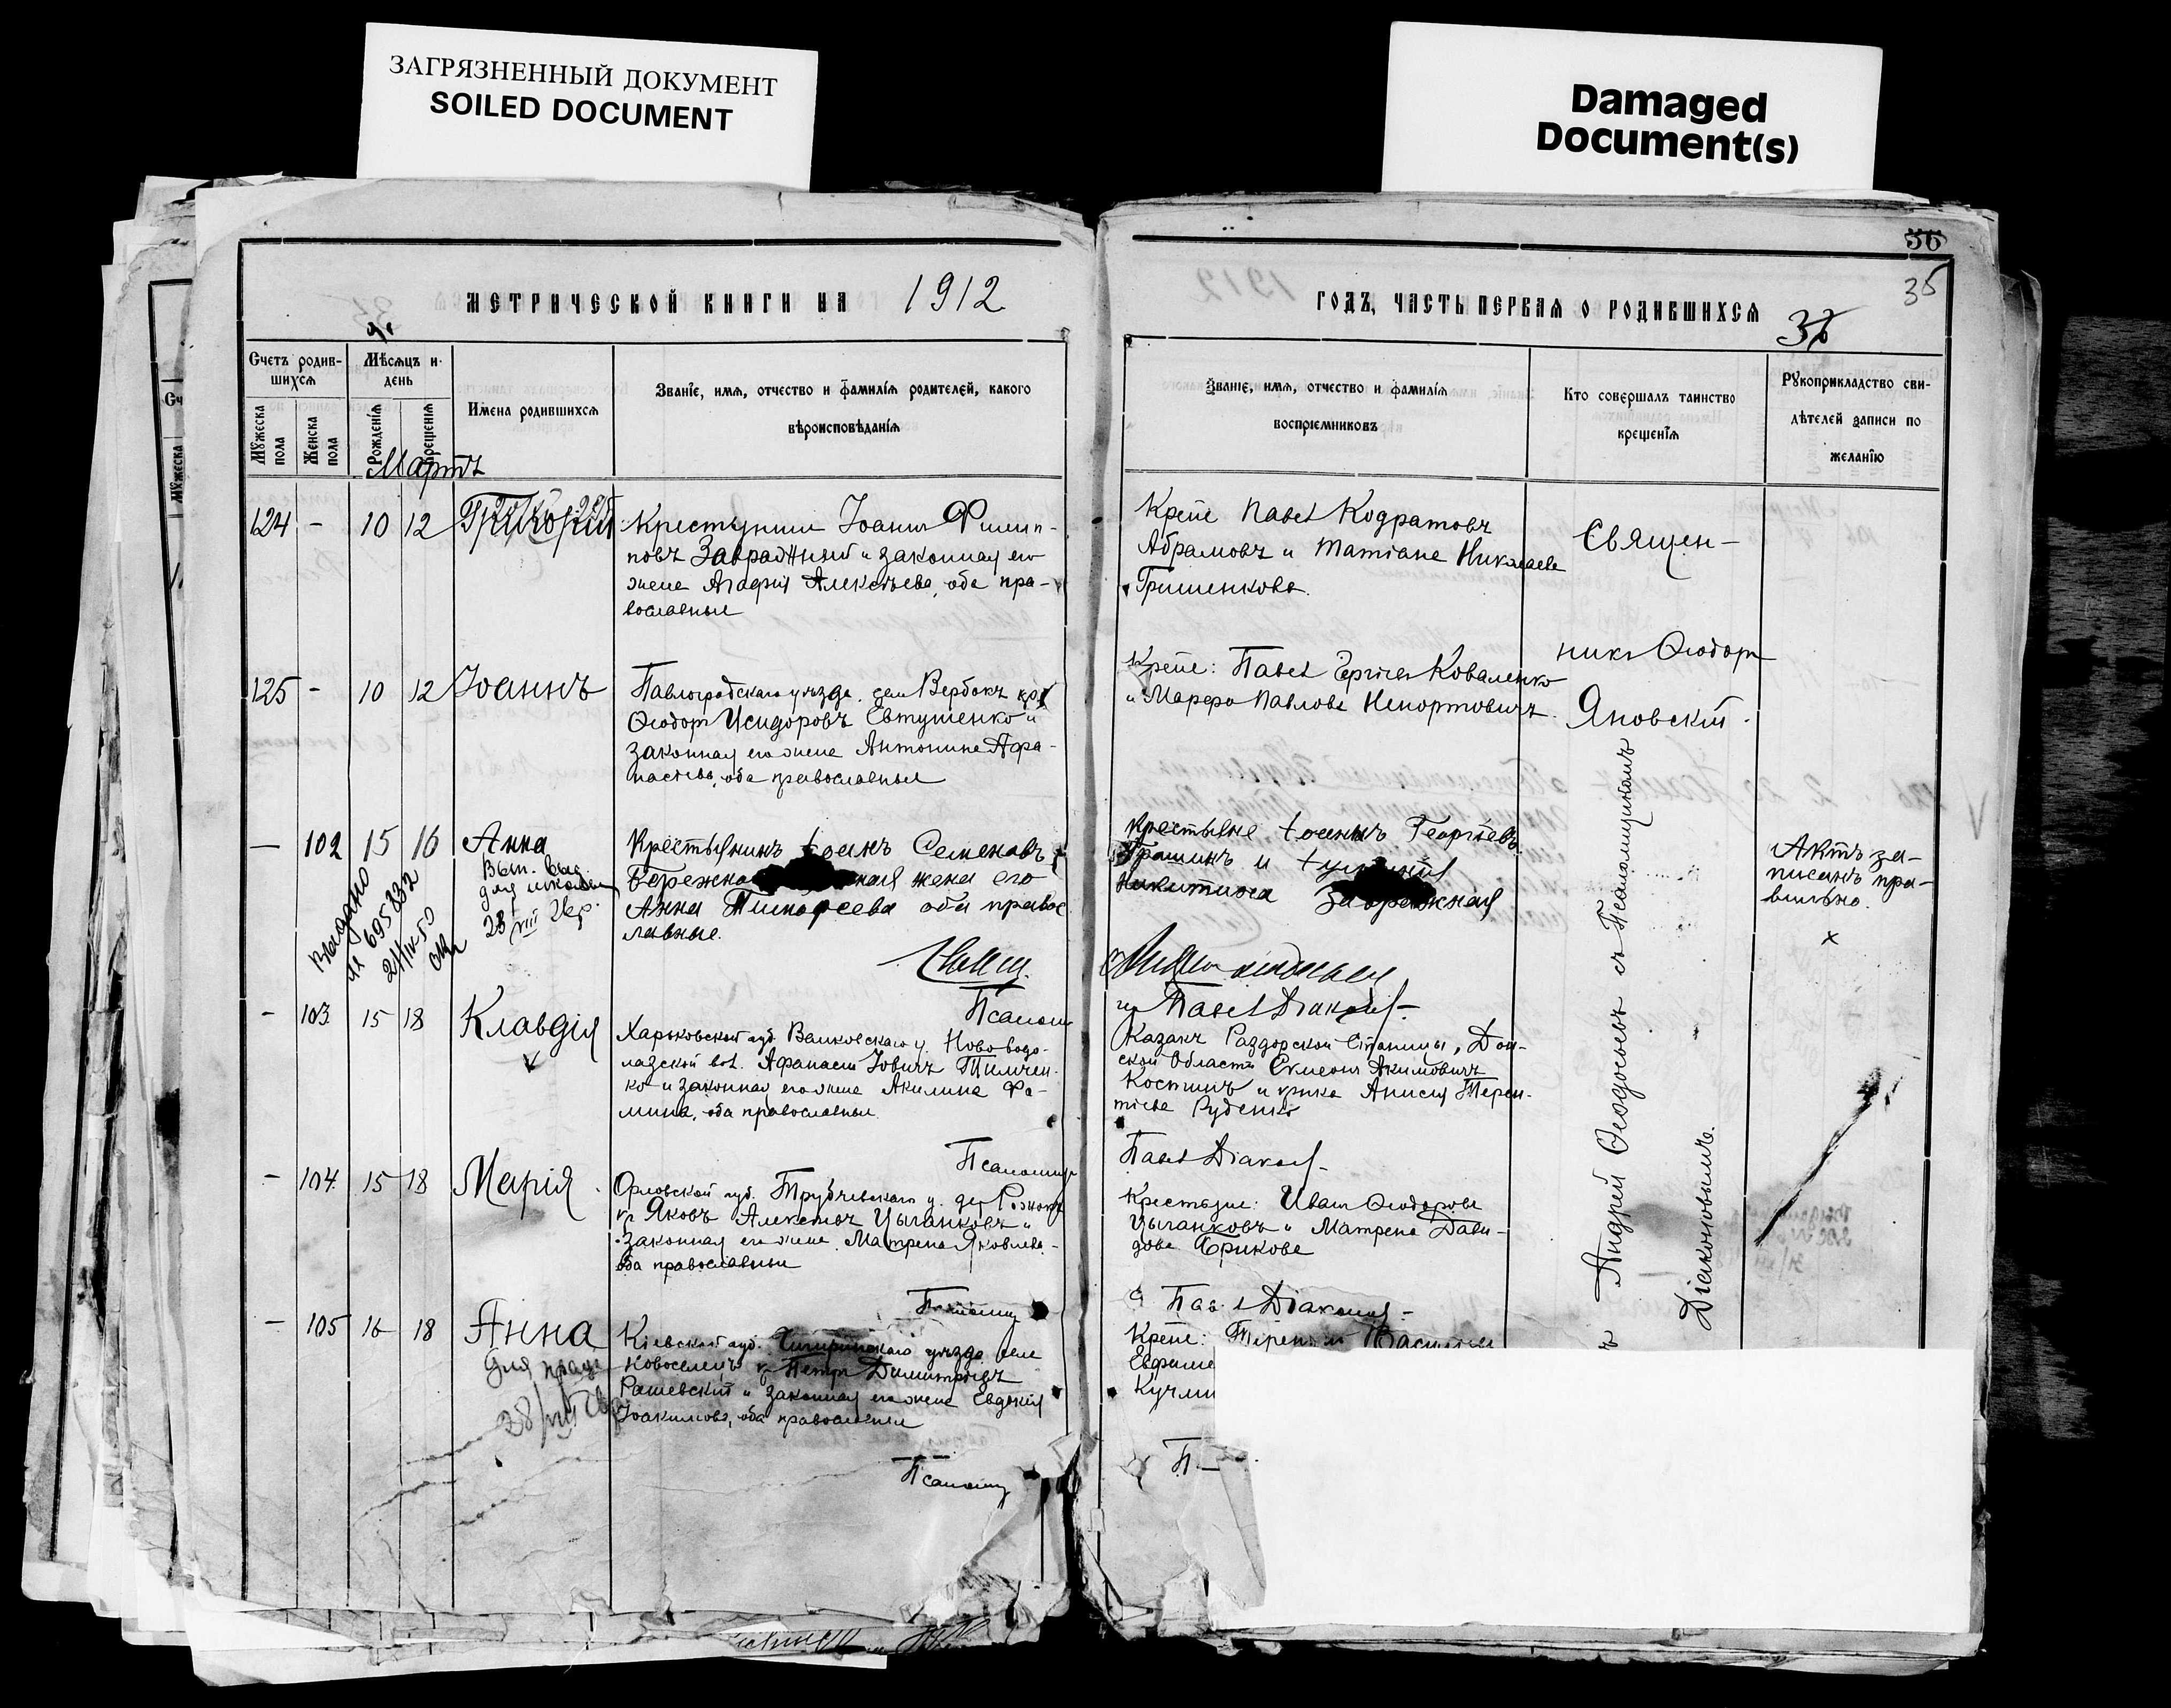 ЗАГРЯЗНЕННЫЙ ДОКУМЕНТ
SOILED DOCUMENT
Damaged
Document(s)
36
35
МЕТРИЧЕСКОЙ КНИГИ НА 1912
ГОДЪ, ЧАСТЬ ПЕРВАЯ О РОДИВШИХСЯ
Счетъ родив-
шихся
Мужеска
пола
Женска
пола
Мѣсяцъ и
день
Рожденія
Крещенія
Имена родившихся
Званіе, имя, отчество и фамилія родителей, какого
вѣроисповѣданія
Званіе, имя, отчество и фамилія
воспріемниковъ
Кто совершалъ таинство
крещенія
Рукоприкладство сви-
дѣтелей записи по
желанію
Мартъ
124 - 10 12 Григорій
Крестьянинъ Іоаннъ Филип-
повъ Завражный и законная его
жена Агафія Алексѣева, оба пра-
вославные
Крѣне Павелъ Кодратовъ
Абрамовъ и Татіана Николаева
Гришенкова.
Священ-
никъ Ѳеодоръ
Яновскій.
125 - 10 12 Іоаннъ
Павлоградскаго уѣзда. сем Вербокъ кр
Ѳеодоръ Исидоровъ Евтушенко и
законная его жена Антонина Афа-
насіева, оба православные
Крѣне: Павелъ Сергіевъ Коваленко
и Марфа Павлова
— 102 15 16 Анна
для школы
28 VIII
Выдано
695832
21/IV-50
Крестьянинъ Іоанъ Семеновъ
Бережно
ная жена его
Анна Тимофеева оба правос
лавные.
Крестьяне Іоаннъ Георгіевъ
Грашинъ и
Никитина
Актъ за-
писанъ пра-
вильно.
х
съ Псаломщикомъ
Андрей Ѳеодосіевъ
Діаконовымъ.
- 103 15 18 Клавдія
Псалом
Павелъ Діаконов-
Харьковской губ. Валковскаго у. Ново водо-
лазской вол. Афанасій Іовичъ Тимчен-
ко и законная его жена Акилина Фо-
мина, оба православные.
Казакъ Раздорской Станицы, Дон-
ской Области Симеонъ Акимовичъ
Костинъ и крѣка Анисія Терен-
тіева Руденко
- 104 15 18 Марія
Псаломщ
Павелъ Діаконов-
Орловской губ. Трубчевскаго у. дер Рожковъ
кр Яковъ Алексѣевъ Цыганковъ и
законная его жена Матрена Яковлева-
оба православные
Крестьяне: Иванъ Ѳеодоровъ
Цыганковъ и Матрена Дави-
дова Брикова
- 105 16 18 Анна
28/VIII
Псаломщ
Павелъ Діаконов-
Кіевской губ. Чигиринскаго уѣзда села
Новоселицъ кр Петръ Димитріевъ
Рашевскій и законная его жена Евдокія
Іоакимова, оба православные
Крѣне: Терентій Василіевъ
Евфиме
Кучми
Псаломщ
П